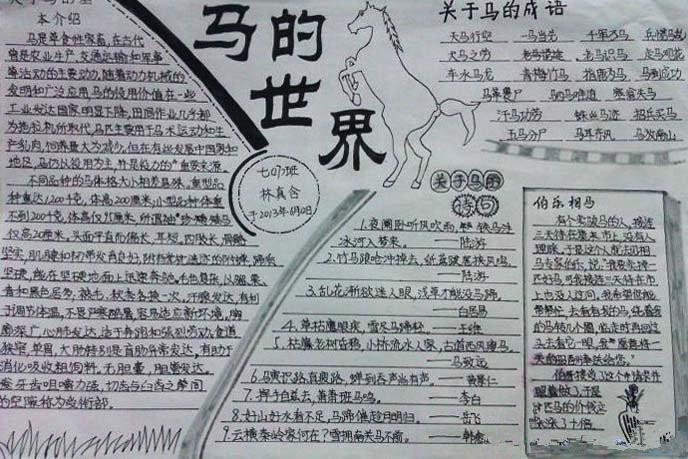 关于马的基
本介绍
马是草食性家畜,在古代
曾是农业生产、交通运输和军事
等活动的主要动力,随着动力机械的
发明和广泛应用,马的役用价值在一些
工业发达国家明显下降,田间作业几乎都
为拖拉机所取代,马匹主要用于马术运动和生
产乳肉,饲养量大为减少,但在有些发展中国家和
地区,马仍以役用为主,并是役力的重要来源
不同品种的马体格大小相差悬殊,重型品
种重达1200千克,体高200厘米;小型品种体重
不到200千克,体高仅95厘米,所谓袖珍矮马
仅高20厘米。头面平直而偏长,耳短。四肢长,骨骼
坚实,肌腱和韧带发育良好,附有掌枕遗迹的附蝉,蹄质
坚硬,能在坚硬地面上迅速奔驰。毛色复杂,以骝、栗、
青和黑色居多;被毛、秋季各换一次。汗腺发达,有利
于调节体温,不畏严寒酷暑,容易适应新环境。胸
廓深广,心肺发达,适于奔跑和强烈劳动。食道
狭窄,单胃,大肠特别是盲肠异常发达,有助于
消化吸收粗饲料。无胆囊,胆管发达。
牙齿咀嚼力强,切齿与臼齿之间
的空隙称为
马的
世
界
七(7)班
林真含
于2013年6月0日
关于马的成语
天马行空 一马当先 千军万马 兵慌马乱
犬马之劳 老马识途 走马观花
车水马龙 青梅竹马 指鹿为马 马到成功
马革裹尸 塞翁失马
汗马功劳 蛛丝马迹 招兵买马
五马分尸 马耳东风 马放南山
关于马的
诗句
1.夜阑卧听风吹雨,铁马冰
冰河入梦来。——陆游
2.竹马踉跄冲掉去,纸鸢跋扈挟风鸣。
——陆游
3.乱花渐欲迷人眼,浅草才能没马蹄。
——白居易
4.草枯鹰眼疾,雪尽马蹄轻。——王维
5.枯藤老树昏鸦,小桥流水人家,古道西风瘦马。
——马致远
6.马畏行路真疲路,蝉到吞声尚有声。——黄景仁
7.挥手自兹去,萧萧班马鸣。——李白
8.好山好水看不足,马蹄催趁月明归。——岳飞
9.云横秦岭家何在?雪拥南关马不前。——韩愈
伯乐相马
有个卖骏马的人,接连
三天待在集市上,没有人
理睬,于是这个人就去见相
马专家伯乐,说:"我要卖掉一
匹好马,可是接连三天待在市
上也没人过问,我希望您能
帮帮忙,去看看我的马,绕着我
的马转几个圈,临走时再回过
头去看它一眼,我愿意将一
天的报酬奉送给您。"
伯乐接受了这个请求,
照着做了,于是
这匹马的价钱立
涨了十倍